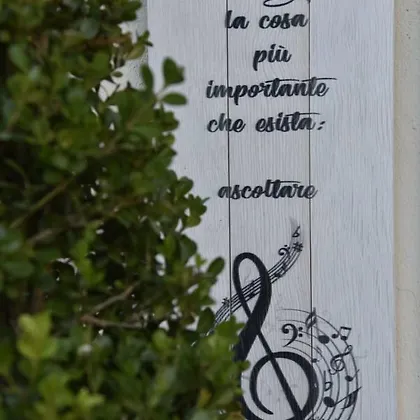 la cosa
più
importante
che esista:
ascoltare